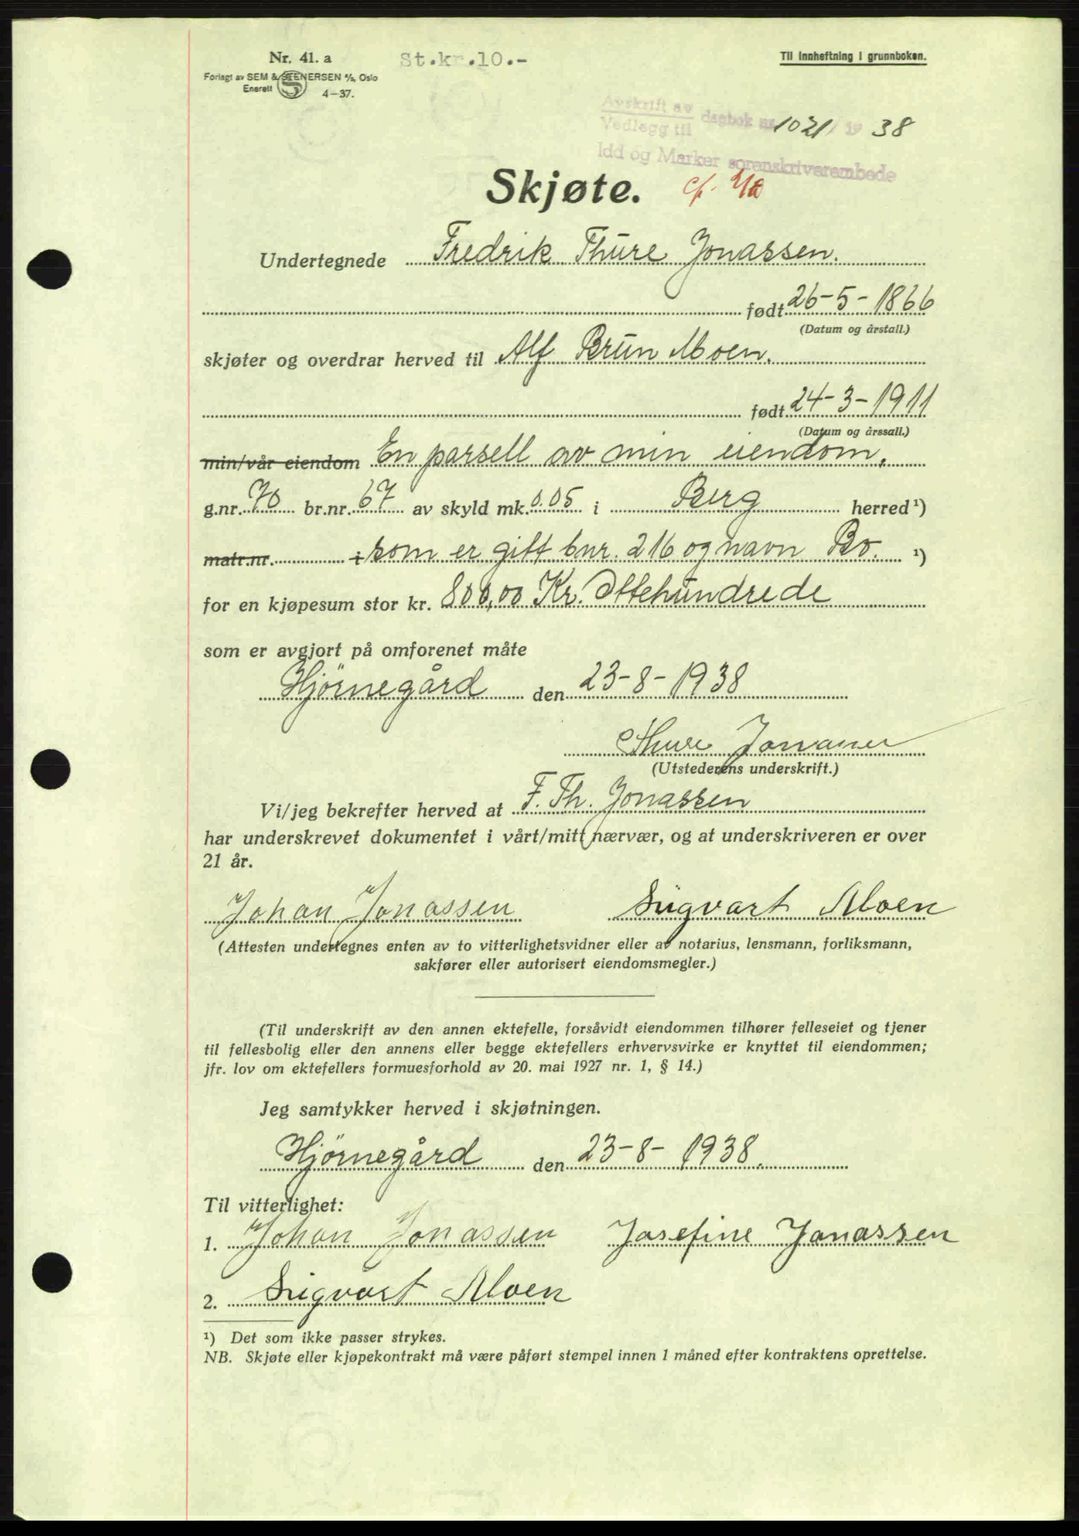 Nr. 41. a
St.kr.10.-
Til innheftning i grunnboken.
Forlagt av SEM & STENERSEN A/S, Oslo
Enerett
4-37.
Avskrift av
Vedlegg til dagbok nr. 1021 / 19 38
Idd og Marker sorenskriverembede
Skjøte.
Undertegnede Fredrik Thure Jonassen.
født 26-5-1866
(Datum og årstall.)
skjøter og overdrar herved til Alf Brun Moen.
født 24-3-1911
(Datum og årssall.)
min/vår eiendom En parsell av min eiendom,
g.nr. 70 br.nr. 67 av skyld mk. 0.05 i Berg herred ¹)
matr.nr. i som er gitt bnr. 216 og navn Bo. ¹)
for en kjøpesum stor kr. 800,00 Kr. Ottehundrede
som er avgjort på omforenet måte
Hjörnegård den 23-8-1938
Thure Jonassen
(Utstederens underskrift.)
Vi/jeg bekrefter herved at F. Th. Jonassen
har underskrevet dokumentet i vårt/mitt nærvær, og at underskriveren er over
21 år.
Johan Jonassen Sigvart Moen
(Attesten undertegnes enten av to vitterlighetsvidner eller av notarius, lensmann, forliksmann,
sakfører eller autorisert eiendomsmegler.)
(Til underskrift av den annen ektefelle, forsåvidt eiendommen tilhører felleseiet og tjener
til fellesbolig eller den annens eller begge ektefellers erhvervsvirke er knyttet til eiendommen;
jfr. lov om ektefellers formuesforhold av 20. mai 1927 nr. 1, § 14.)
Jeg samtykker herved i skjøtningen.
Hjörnegård den 23-8-1938.
Til vitterlighet:
1. Johan Jonassen Josefine Jonassen
2. Sigvart Moen
¹) Det som ikke passer strykes.
NB. Skjøte eller kjøpekontrakt må være påført stempel innen 1 måned efter kontraktens oprettelse.